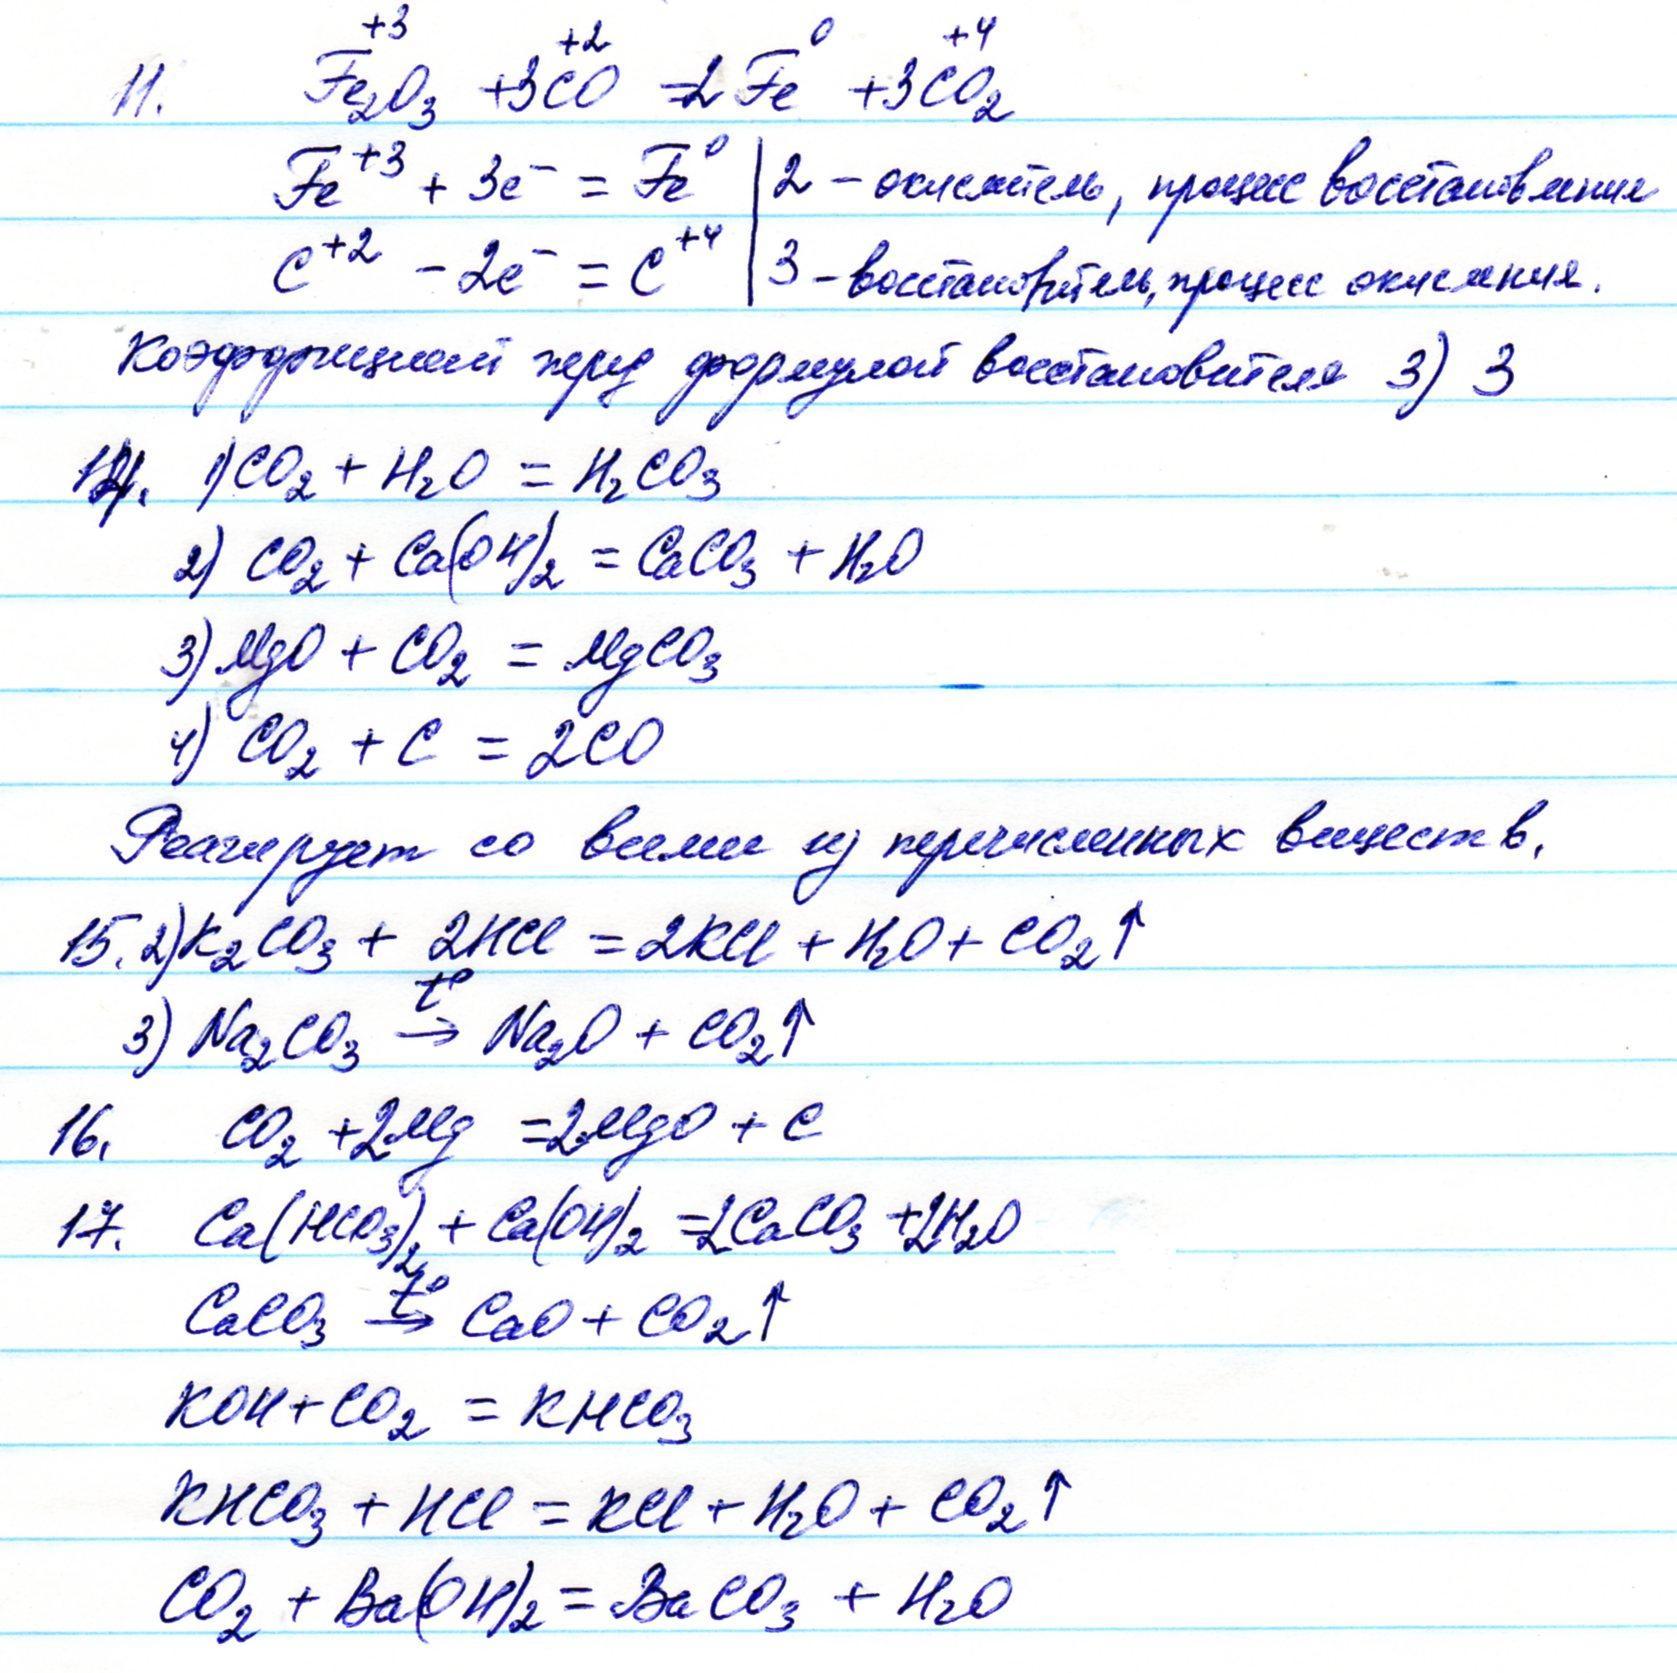 11. Fe₂⁺³O₃ + 3C⁺²O = 2Fe⁰ + 3C⁺⁴O₂
Fe⁺³ + 3e⁻ = Fe⁰ | 2 – окислитель, процесс восстановления
C⁺² – 2e⁻ = C⁺⁴ | 3 – восстановитель, процесс окисления.
Коэффициент перед формулой восстановителя 3) 3
14. 1) CO₂ + H₂O = H₂CO₃
2) CO₂ + Ca(OH)₂ = CaCO₃ + H₂O
3) MgO + CO₂ = MgCO₃
4) CO₂ + C = 2CO
Реагирует со всеми из перечисленных веществ.
15. 2) K₂CO₃ + 2HCl = 2KCl + H₂O + CO₂↑
3) Na₂CO₃ t°→ Na₂O + CO₂↑
16. CO₂ + 2Mg = 2MgO + C
17. Ca(HCO₃)₂ + Ca(OH)₂ = 2CaCO₃ + 2H₂O
CaCO₃ t°→ CaO + CO₂↑
KOH + CO₂ = KHCO₃
KHCO₃ + HCl = KCl + H₂O + CO₂↑
CO₂ + Ba(OH)₂ = BaCO₃ + H₂O